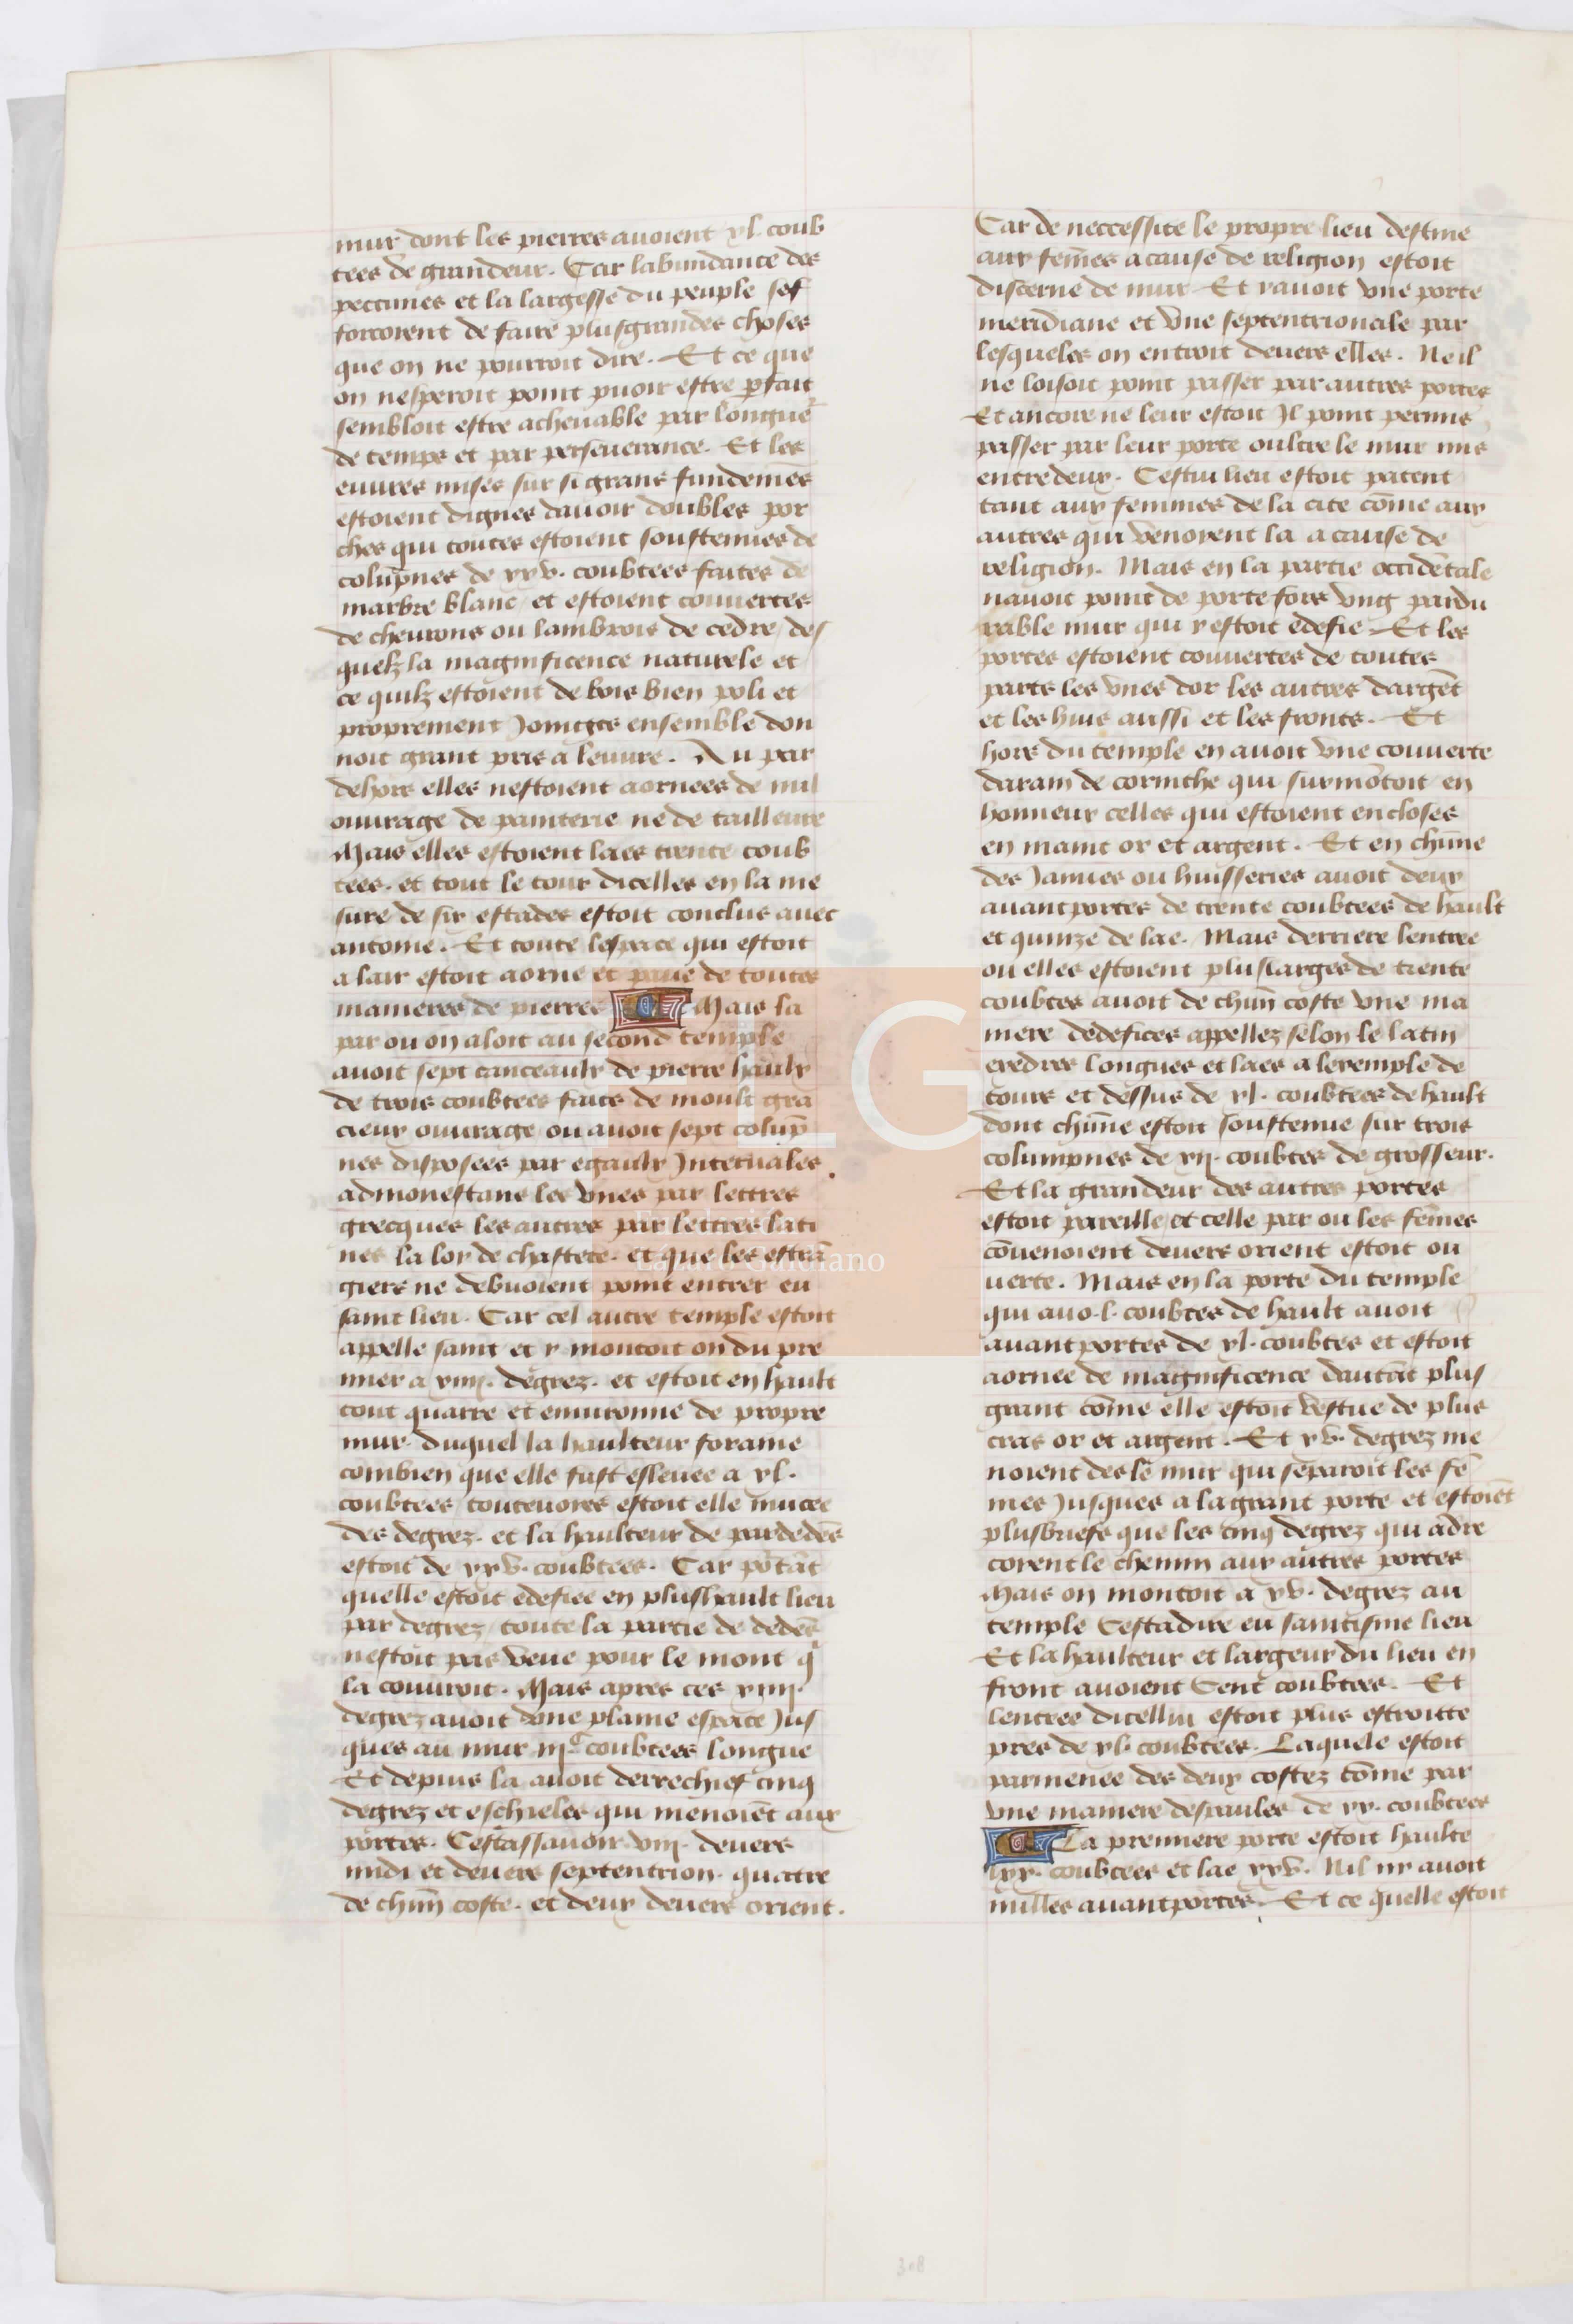 mur dont les pierres auoient xl. coub
tees de grandeur. Car labundance des
peccunes et la largesse du peuple sef
forcoient de faire plusgrandes choses
que on ne pourroit dire. Et ce que
on nesperoit point puoir estre p̱fait
sembloit estre acheuable par longueᷣ
de temps et par perseuerance. Et les
euures mises sur si grans fundemēs
estoient dignes dauoir doubles por
ches qui toutes estoient soustenues de
colūpnes de xxv. coubtees faites de
marbre blanc / et estoient couuertes
de cheurons ou lambrois de cedre / des
quelz la magnificence naturele et
ce quilz estoient de bois bien poli et
proprement Joinctes ensemble don
noit grant pris a leuure. Au par
dehors elles nestoient aornees de nul
ouurage de painterie ne de tailleure
Mais elles estoient laes trente coub
tees. et tout le tour dicelles en la me
sure de six estades estoit conclus auec
antoine. Et toute lespace qui estoit
a lair estoit aorne et paue de toutes
manieres de pierres Mais la
par ou on aloit au second temple
auoit sept canceaulx de pierre haulx
de trois coubtees fais de moult gra
cieux ouurage ou auoit sept colūp
nes disposees par egaulx Interuales
admonestans les vnes par lettres
grecques les autres par lettres lati
nes la loy de chastete. et que les estrā
giers ne debuoient point entrer eu
saint lieu. Car cel autre temple estoit
appelle saint et y montoit on du pre
mier a xiiij. degrez. et estoit en hault
tout quarre et enuironne de propre
mur. duquel la haulteur foraine
combien que elle fust esleuee a xl.
coubtees / touteuoies estoit elle mucee
des degrez. et la haulteur de pardedēs
estoit de xxv. coubtees. Car pōtāt
quelle estoit edefiee en plushault lieu
par degrez / toute la partie de dedēs
nestoit pas veue pour le mont q̄
la couuroit. Mais apres ces xiiij.
degrez auoit vne plaine espace Jus
ques au mur iijᶜ coubtees longue
Et depuis la auoit derrechief cinq
degrez et eschieles qui menoiēt aux
portes. Cestassauoir viij. deuers
midi et deuers septentrion. quatre
de chūn coste. et deux deuers orient.
Car de neccessite le propre lieu destine
aux fem̄es a cause de religion estoit
discerne de mur Et y auoit vne porte
meridiane et vne septentrionale par
lesqueles on entroit deuers elles. Ne il
ne loisoit point passer par autres portes
Et ancore ne leur estoit Il point permis
passer par leur porte oultre le mur mis
entredeux. Cestui lieu estoit patent
tant aux femmes de la cite cōme aux
autres qui venoient la a cause de
religion. Mais en la partie occidētale
nauoit point de porte fors vng pardu
rable mur qui y estoit edefie. Et les
portes estoient couuertes de toutes
pars les vnes dor les autres dargēt
et les huis aussi et les frons. Et
hors du temple en auoit vne couuerte
darain de corinthe qui surmōtoit en
honneur celles qui estoient encloses
en maint or et argent. Et en chūne
des Januies ou huisseries auoit deux
auantportes de trente coubtees de hault
et quinze de lae. Mais derriere lentree
ou elles estoient pluslarges de trente
coubtes auoit de chūn coste vne ma
niere dedefices appellez selon le latin
exedres longues et laes a lexemple de
tours et dessus de xl. coubtees de hault
dont chūne estoit soustenue sur trois
columpnes de xij. coubtes de grosseur.
Et la grandeur des autres portes
estoit pareille / et celle par ou les fēmes
cōuenoient deuers orient estoit ou
uerte. Mais en la porte du temple
qui auo. l. coubtes de hault auoit
auantportes de xl. coubtes et estoit
aornee de magnificence dautāt plus
grant cōme elle estoit vestue de plus
cras or et argent. Et xv. degrez me
noient des le mur qui separoit les fē
mes Jusques a la grant porte et estoiēt
plusbriefs que les cinq degrez qui adre
coient le chemin aux autres portes
Mais on montoit a xv. degrez au
temple Cestadire eu saintisme lieu
Et la haulteur et largeur du lieu en
front auoient Cent coubtees. Et
lentree dicellui estoit plus estroitte
pres de xl. coubtees. Laquele estoit
parmenee des deux costez cōme par
vne maniere despaules de xx. coubtees
La premiere porte estoit haulte
lxx. coubtees et lae xxv. Nil ny auoit
nulles auantportes. Et ce quelle estoit
308
LG
Lázaro Galdiano